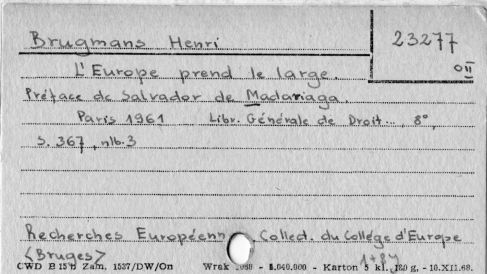 Brugmans Henri
23277
OII
L'Europe prend le large.
Préface de Salvador de Madariaga.
Paris 1961 Libr. Générale de Droit..., 8°,
S. 367, nlb. 3
Recherches Européenn Collect. du Collège d'Europe
<Bruges>
1+87
CWD B 15 b Zam. 1537/DW/On Wrak 1968 - 5.040.000 - Karton 8 kl. 180 g. - 10.XII.68.